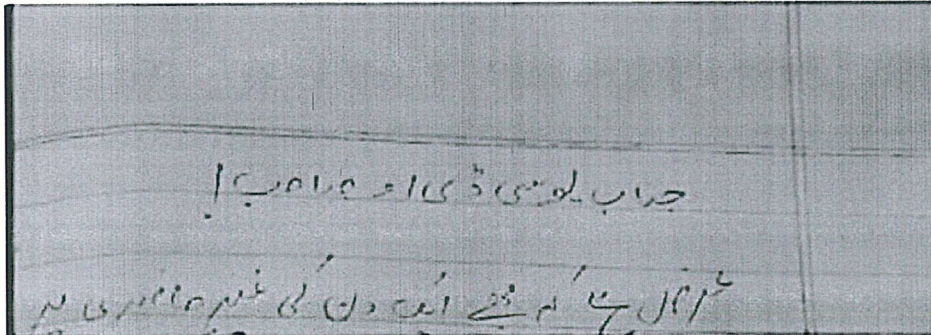 جناب یو سی ڈی او صاحب!
عرض ہے کہ مجھے ایک دن کی غیر حاضری پر